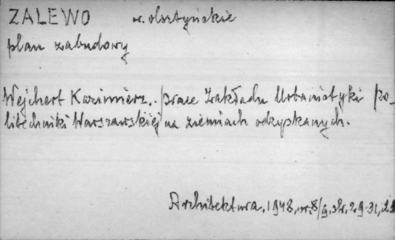 ZALEWO w. olsztyńskie
plan zabudowy
Wejchert Kazimierz. Prace Zakładu Urbanistyki Po-
litechniki Warszawskiej na ziemiach odzyskanych.
Architektura. 1948, nr. 8/9, str. 29-31, il.